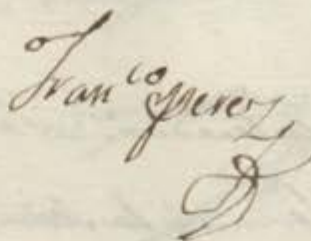 Fran.co Perez